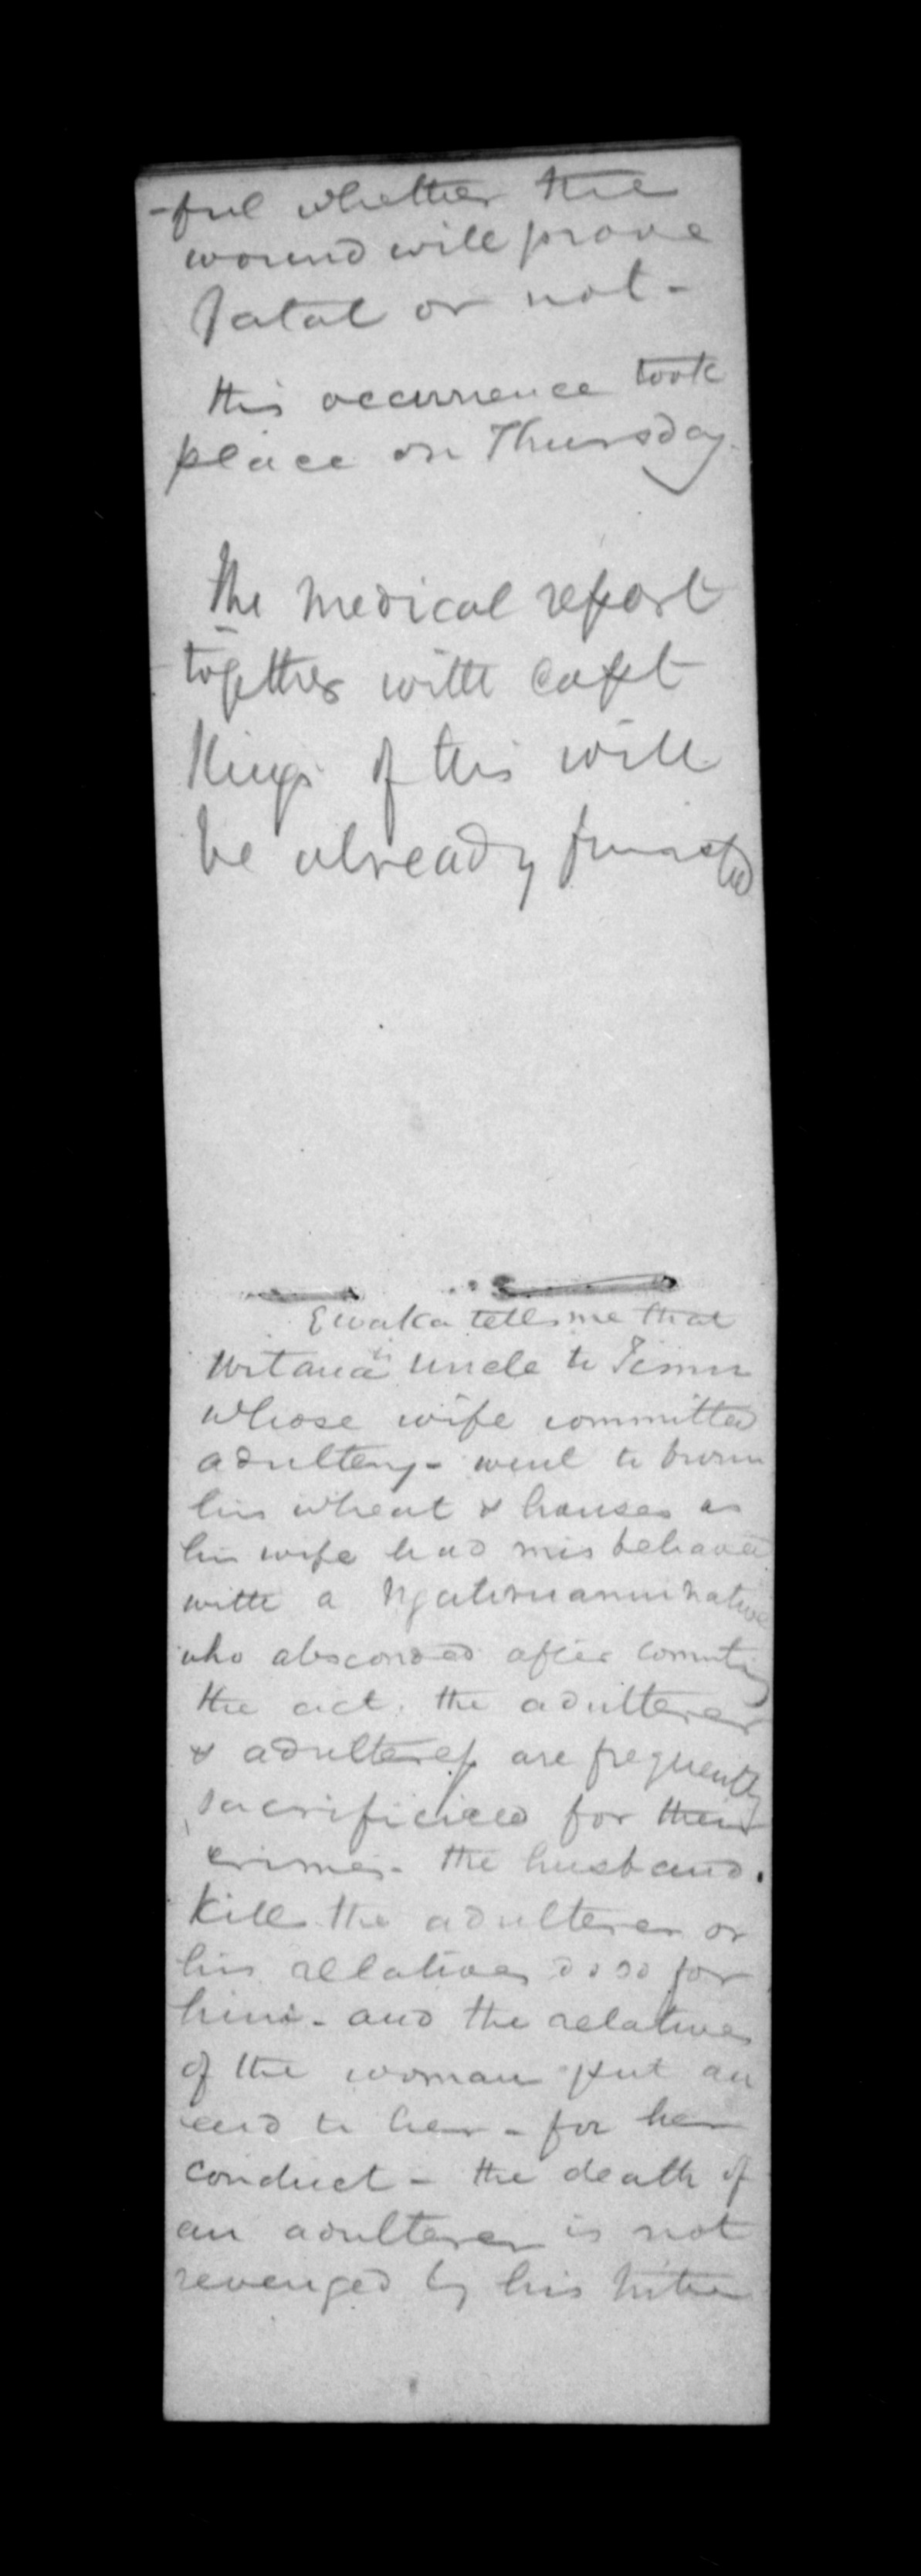 -ful whether the
wound will prove
fatal or not -
this occurrence took
place on Thursday.
The medical report
together with Capt
King's of this will
be already
Ewaka tells me that
uncle to
whose wife committed
adultery - went to burn
his wheat & houses as
his wife had misbehaved
with a native
who absconded after
the act. the adulterer
& adulteress are frequently
for their
crimes - the husband
kills the adulterer or
his relatives do so for
him - and the relatives
of the woman put an
end to her - for her
conduct - the death of
an adulterer is not
revenged by his tribe